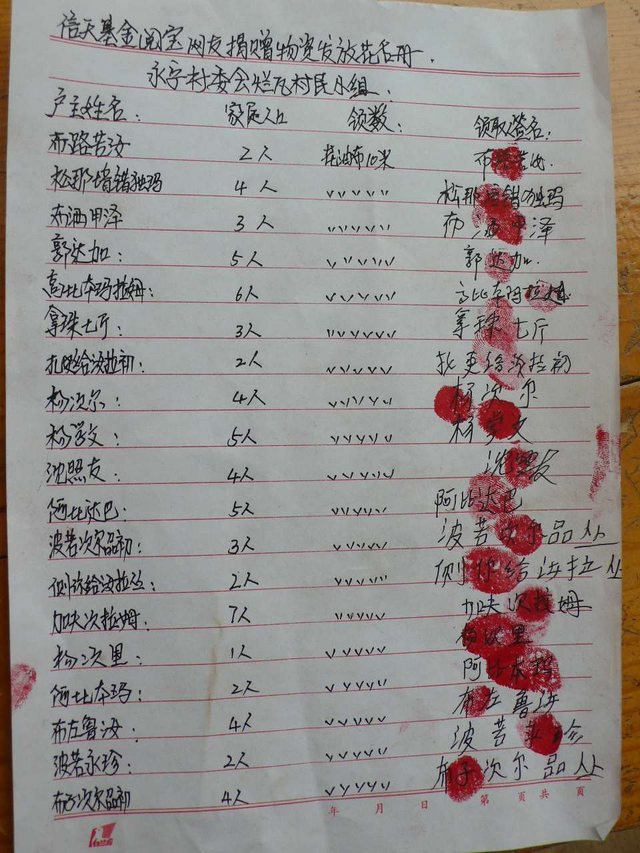 倍天基金淘宝网友捐赠物资发放花名册.
永宁村委会烂瓦村民小组.
户主姓名: 家庭人口 领数: 领取签名:
布路若汝 2人 拉油布10米 布路若汝.
松那增错独玛 4人 〃〃〃〃〃 松那增错独玛
布洒甲泽 3人 〃〃〃〃〃 布洒甲泽
郭达加: 5人 〃〃〃〃〃 郭达加.
高比本玛拉姆: 6人 〃〃〃〃〃 高比本玛拉姆
拿珠七斤 3人 〃〃〃〃〃 拿珠七斤
扎史给汝拉初: 2人 〃〃〃〃〃 扎史给汝拉初
杨次尔: 4人 〃〃〃〃〃 杨次尔
杨学文: 5人 〃〃〃〃〃 杨学文
沈照友: 4人 〃〃〃〃〃 沈照友
阿比达巴: 5人 〃〃〃〃〃 阿比达巴
波若次尔品初: 3人 〃〃〃〃〃 波若次尔品丛
侧你给汝拉丛 2人 〃〃〃〃〃 侧你给汝拉丛
加夫次拉姆: 7人 〃〃〃〃〃 加夫次拉姆
杨次里: 1人 〃〃〃〃〃 杨次里
阿比本玛: 2人 〃〃〃〃〃 阿比本玛
布左鲁汝: 4人 〃〃〃〃〃 布左鲁汝
波若永珍: 2人 〃〃〃〃〃 波若永珍
布子次尔品初 4人 〃〃〃〃〃 布子次尔品丛
年 月 日 第 页 共 页